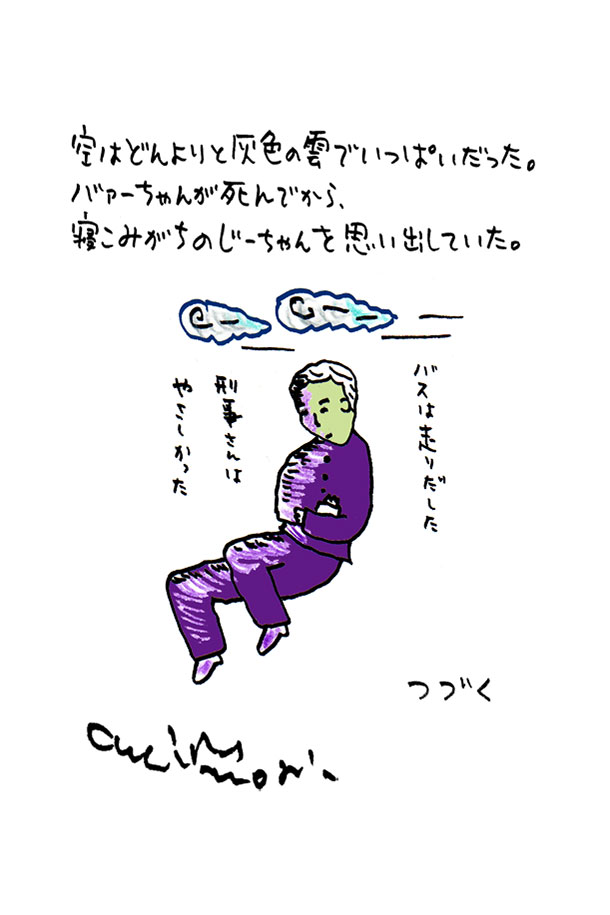 空はどんよりと灰色の雲でいっぱいだった。
バァーちゃんが死んでから、
寝こみがちのじーちゃんを思い出していた。
バスは走りだした
刑事さんは
やさしかった
つづく